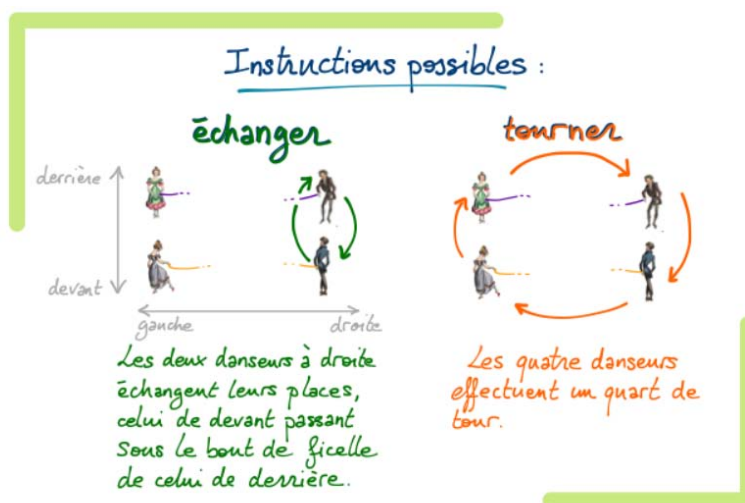 Instructions possibles :
échanger
tourner
derrière
devant
gauche
droite
Les deux danseurs à droite
échangent leurs places,
celui de devant passant
sous le bout de ficelle
de celui de derrière.
Les quatre danseurs
effectuent un quart de
tour.